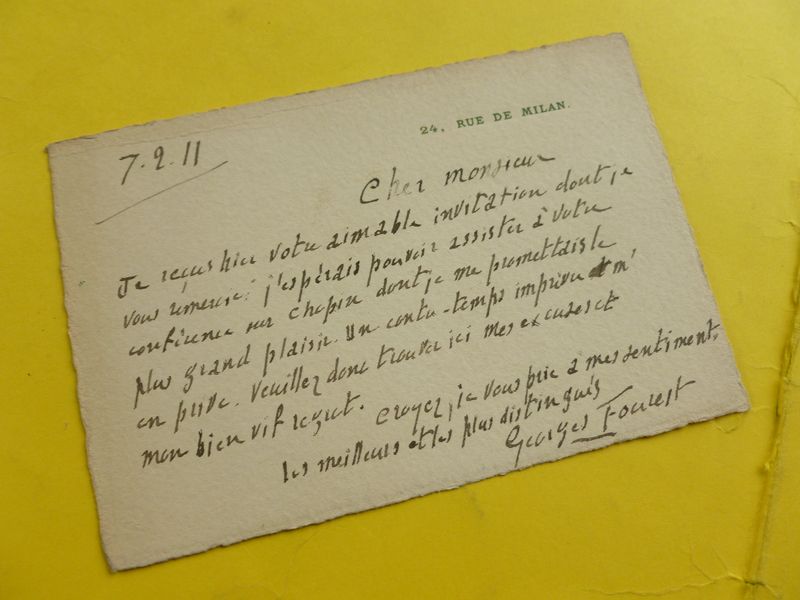 24, RUE DE MILAN.
7.2.11
Cher monsieur
Je reçus hier votre aimable invitation dont je
vous remercie : j'espérais pouvoir assister à votre
conférence sur Chopin dont je me promettais le
plus grand plaisir. Un contre-temps imprévu m'
en prive. Veuillez donc trouver ici mes excuses et
mon bien vif regret.
Croyez, je vous prie à mes sentiments
les meilleurs et les plus distingués
Georges Fourest